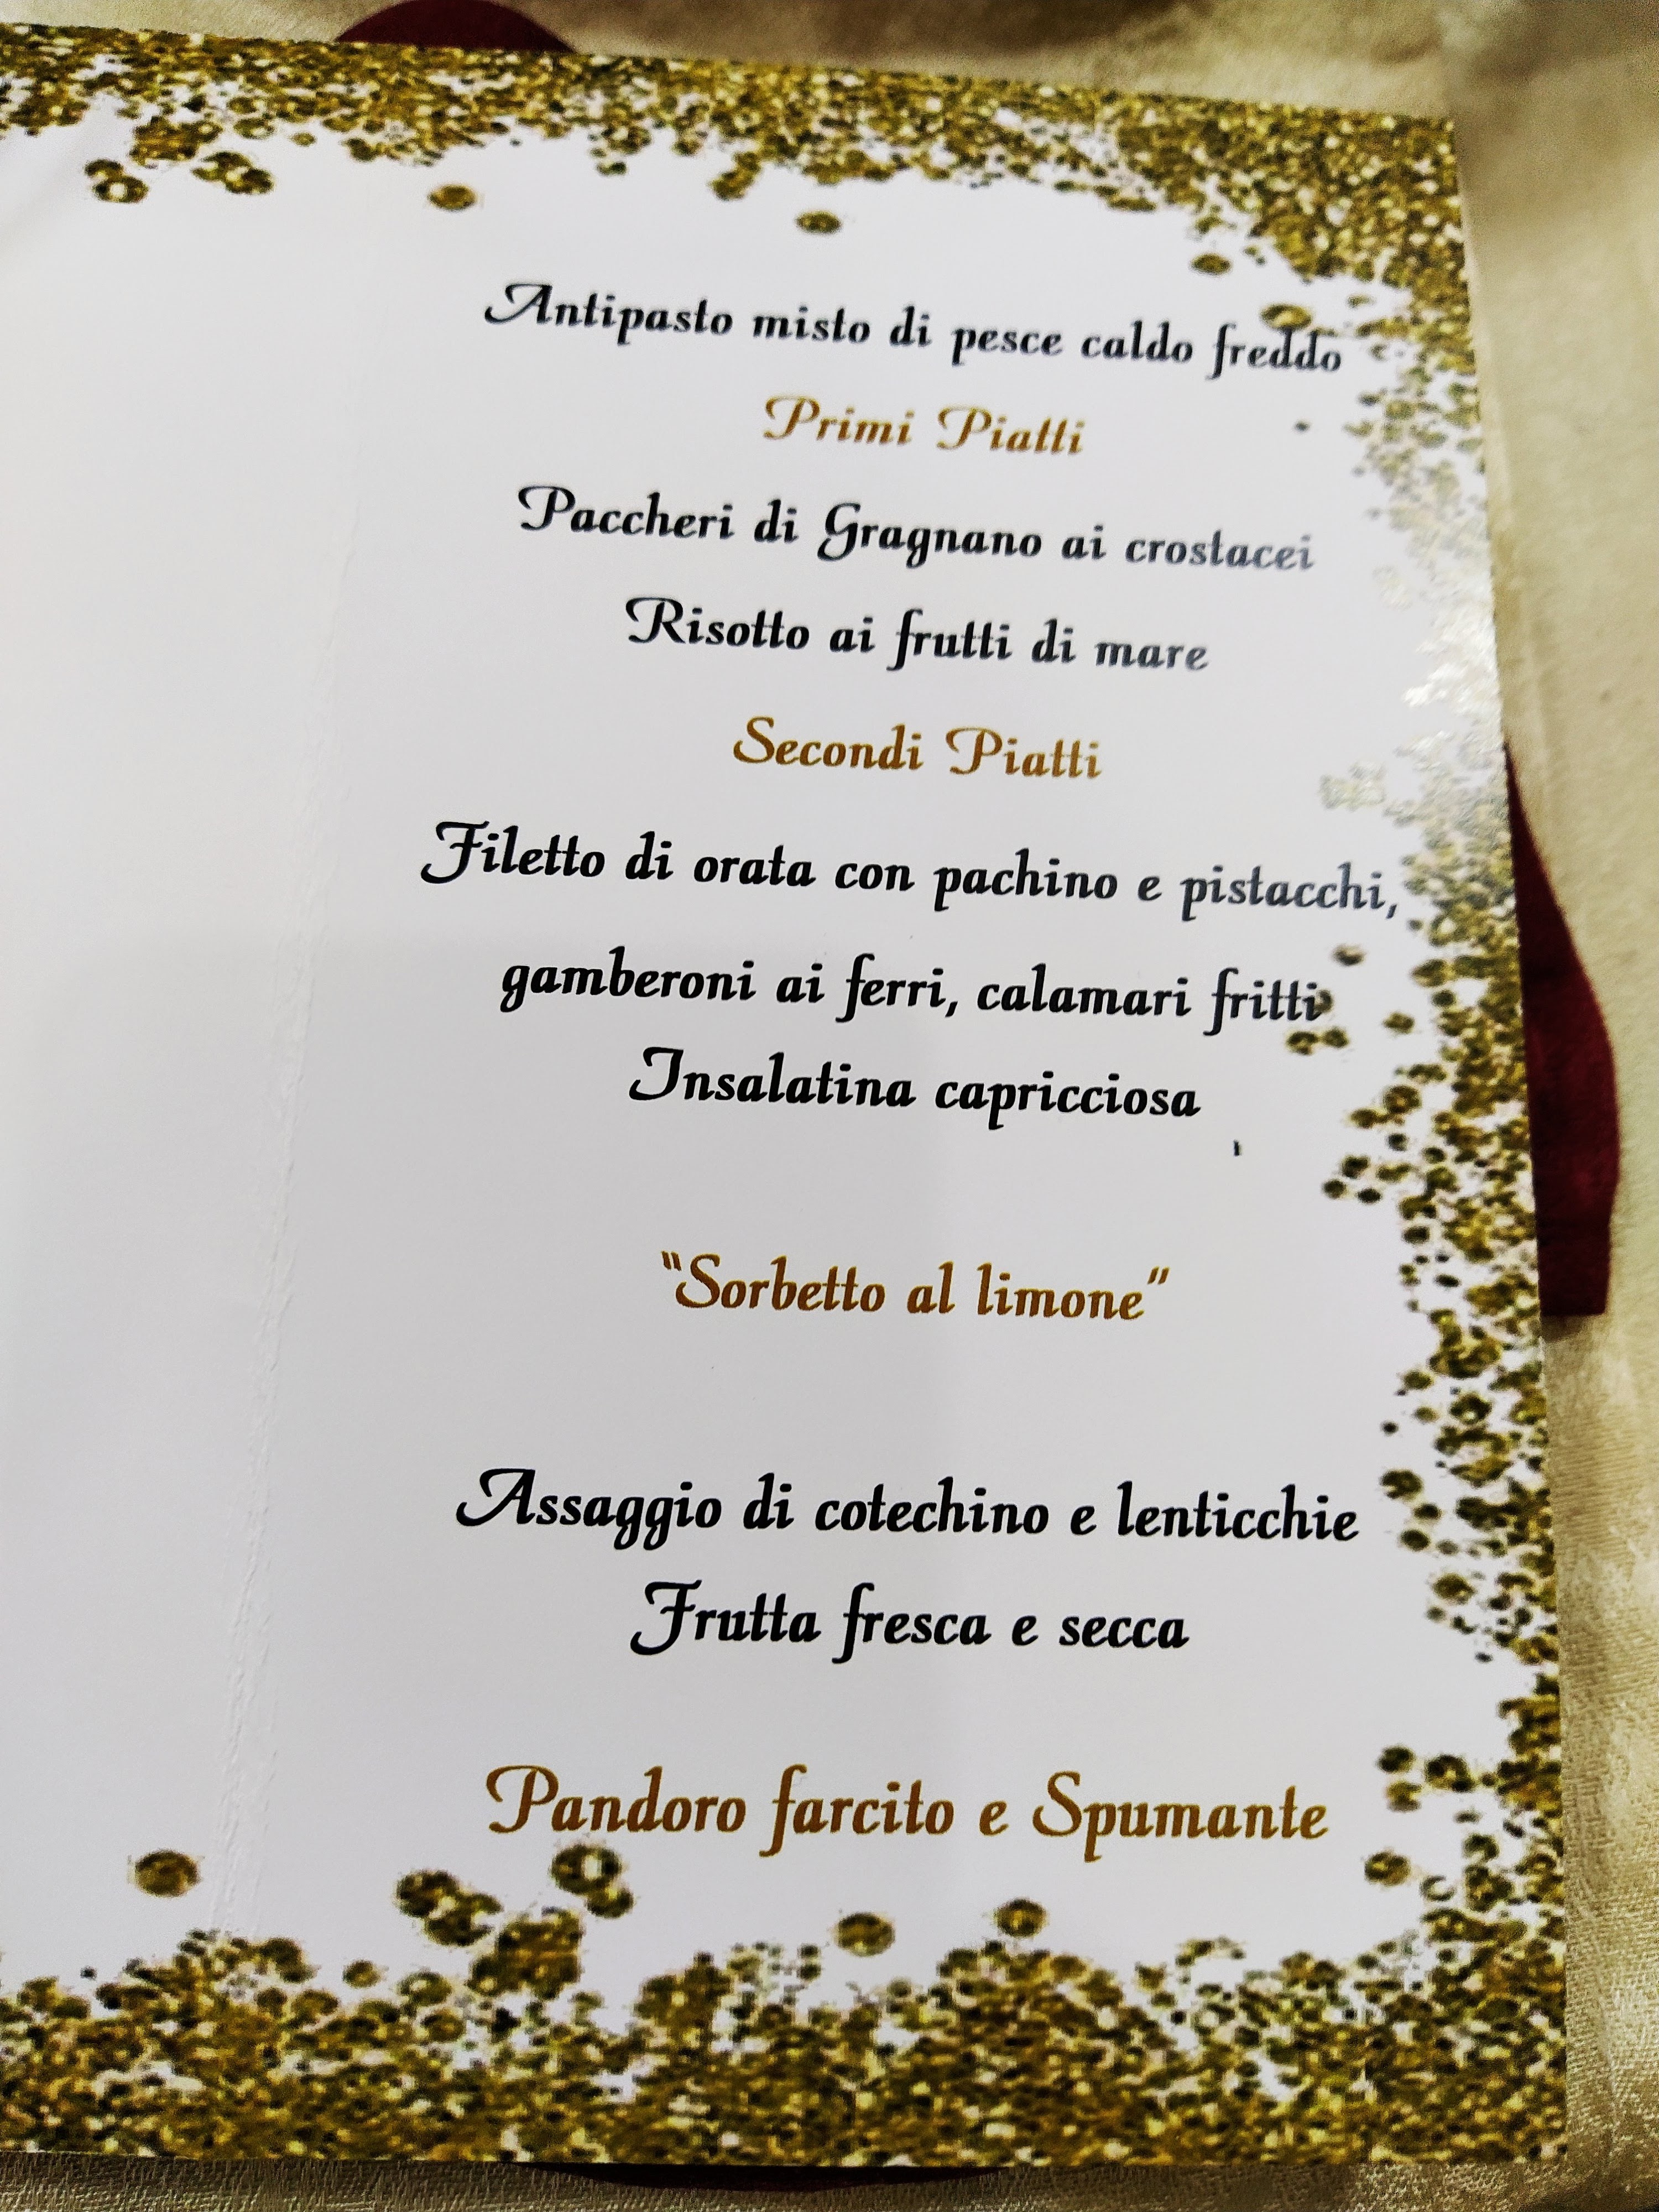 Antipasto misto di pesce caldo freddo
Primi Piatti
Paccheri di Gragnano ai crostacei
Risotto ai frutti di mare
Secondi Piatti
Filetto di orata con pachino e pistacchi,
gamberoni ai ferri, calamari fritti
Insalatina capricciosa
"Sorbetto al limone"
Assaggio di cotechino e lenticchie
Frutta fresca e secca
Pandoro farcito e Spumante